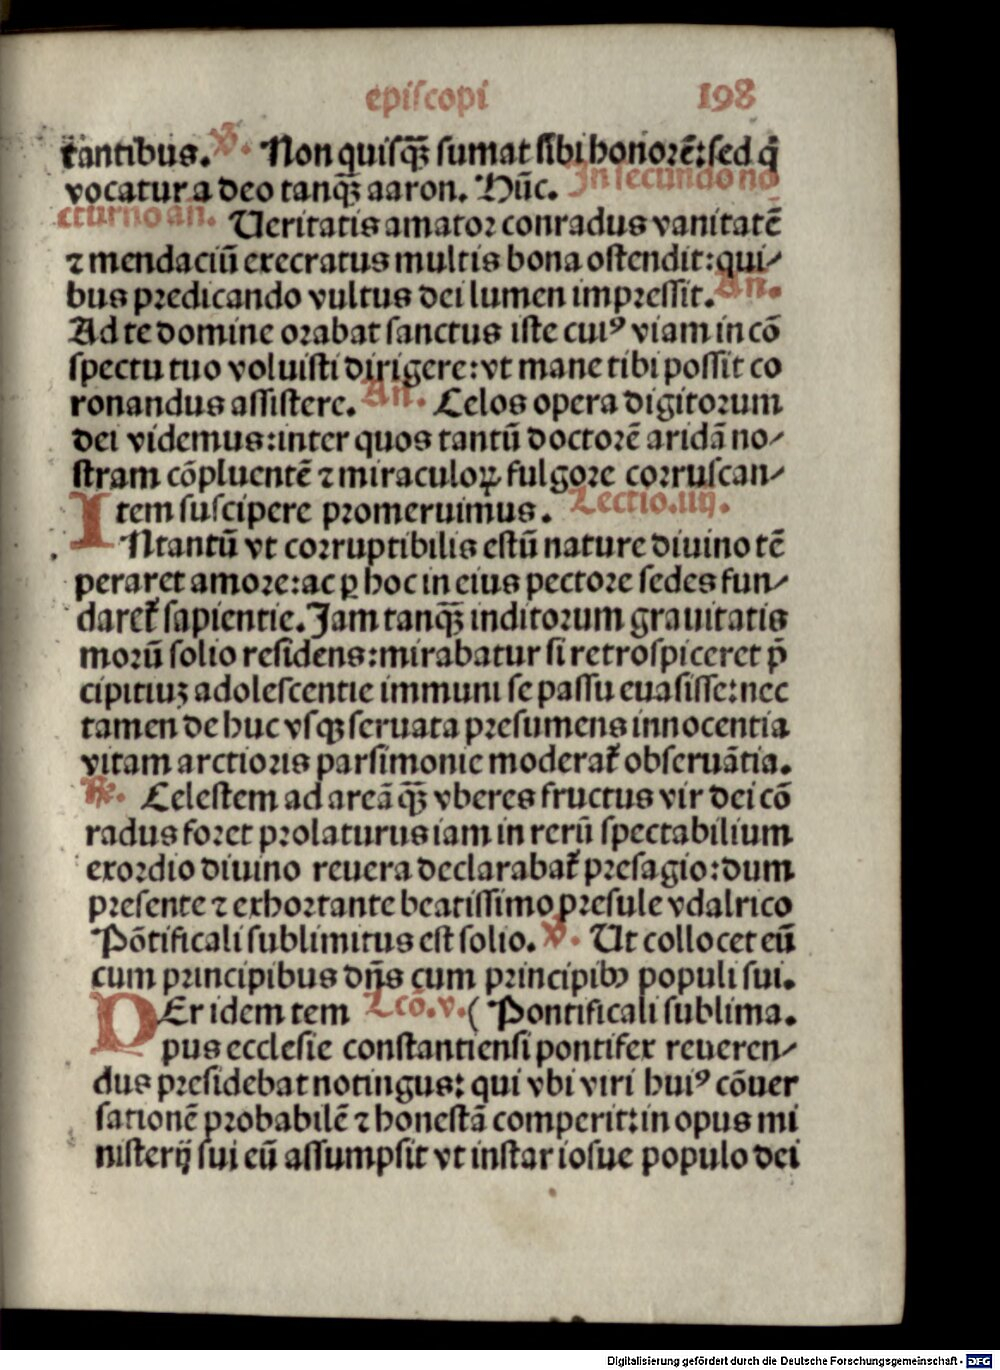 episcopi 198
tantibus. ℣. Non quisq̃ sumat sibi honorẽ: sed q̃
vocatur a deo tanq̃ aaron. Hũc. In secundo no
cturno añ. Ueritatis amator conradus vanitatẽ
⁊ mendaciũ execratus multis bona ostendit: qui⸗
bus predicando vultus dei lumen impressit. An.
Ad te domine orabat sanctus iste cuiꝰ viam in cõ
spectu tuo voluisti dirigere: vt mane tibi possit co
ronandus assistere. An. Celos opera digitorum
dei videmus: inter quos tantũ doctorẽ aridã no⸗
stram cõpluentẽ ⁊ miraculoꝝ fulgore corruscan⸗
tem suscipere promeruimus. Lectio.iiij.
INtantũ vt corruptibilis estũ nature diuino tẽ
peraret amore: ac ꝑ hoc in eius pectore sedes fun⸗
daret᷑ sapientie. Jam tanq̃ inditorum grauitatis
morũ solio residens: mirabatur si retrospiceret p̃
cipitiuꝫ adolescentie immuni se passu euasisse: nec
tamen de huc vsqꝫ seruata presumens innocentia
vitam arctioris parsimonie moderat᷑ obseruãtia.
℟. Celestem ad areã q̃ vberes fructus vir dei cõ
radus foret prolaturus iam in rerũ spectabilium
exordio diuino reuera declarabat᷑ presagio: dum
presente ⁊ exhortante beatissimo presule vdalrico
Põtificali sublimitus est solio. ℣. Ut collocet eũ
cum principibus dñs cum principibꝫ populi sui.
PEr idem tem Lcõ.v. ( Pontificali sublima.
pus ecclesie constantiensi pontifex reueren⸗
dus presidebat notingus: qui vbi viri huiꝰ cõuer
sationẽ probabilẽ ⁊ honestã comperit: in opus mi
nisterij sui eũ assumpsit vt instar iosue populo dei
Digitalisierung gefördert durch die Deutsche Forschungsgemeinschaft - DFG